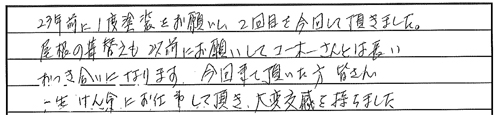 23年前に1度塗装をお願いし2回目を今回して頂きました。
屋根の葺替えも以前にお願いしてコーキーさんとは長い
おつき合いになります。今回来て頂いた方皆さん
一生けん命にお仕事して頂き、大変交感を持ちました